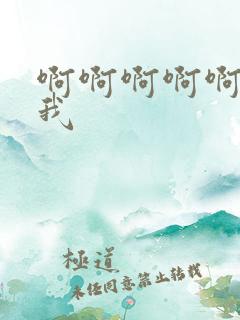 啊啊啊啊啊
我
極道
未任同意禁止转载